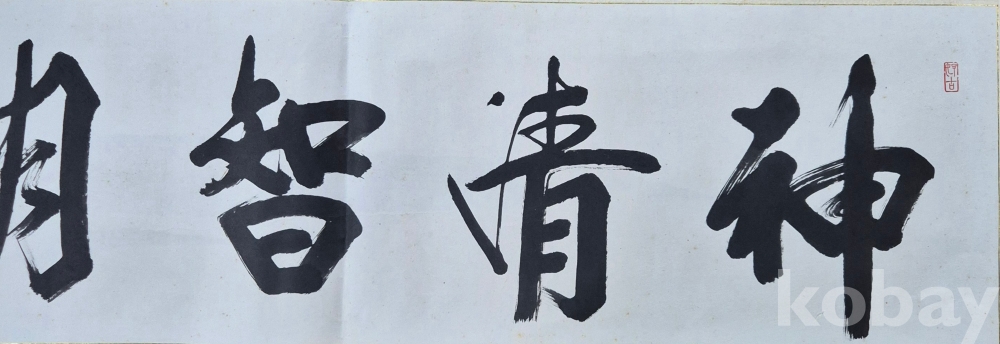 神清智明
kobay